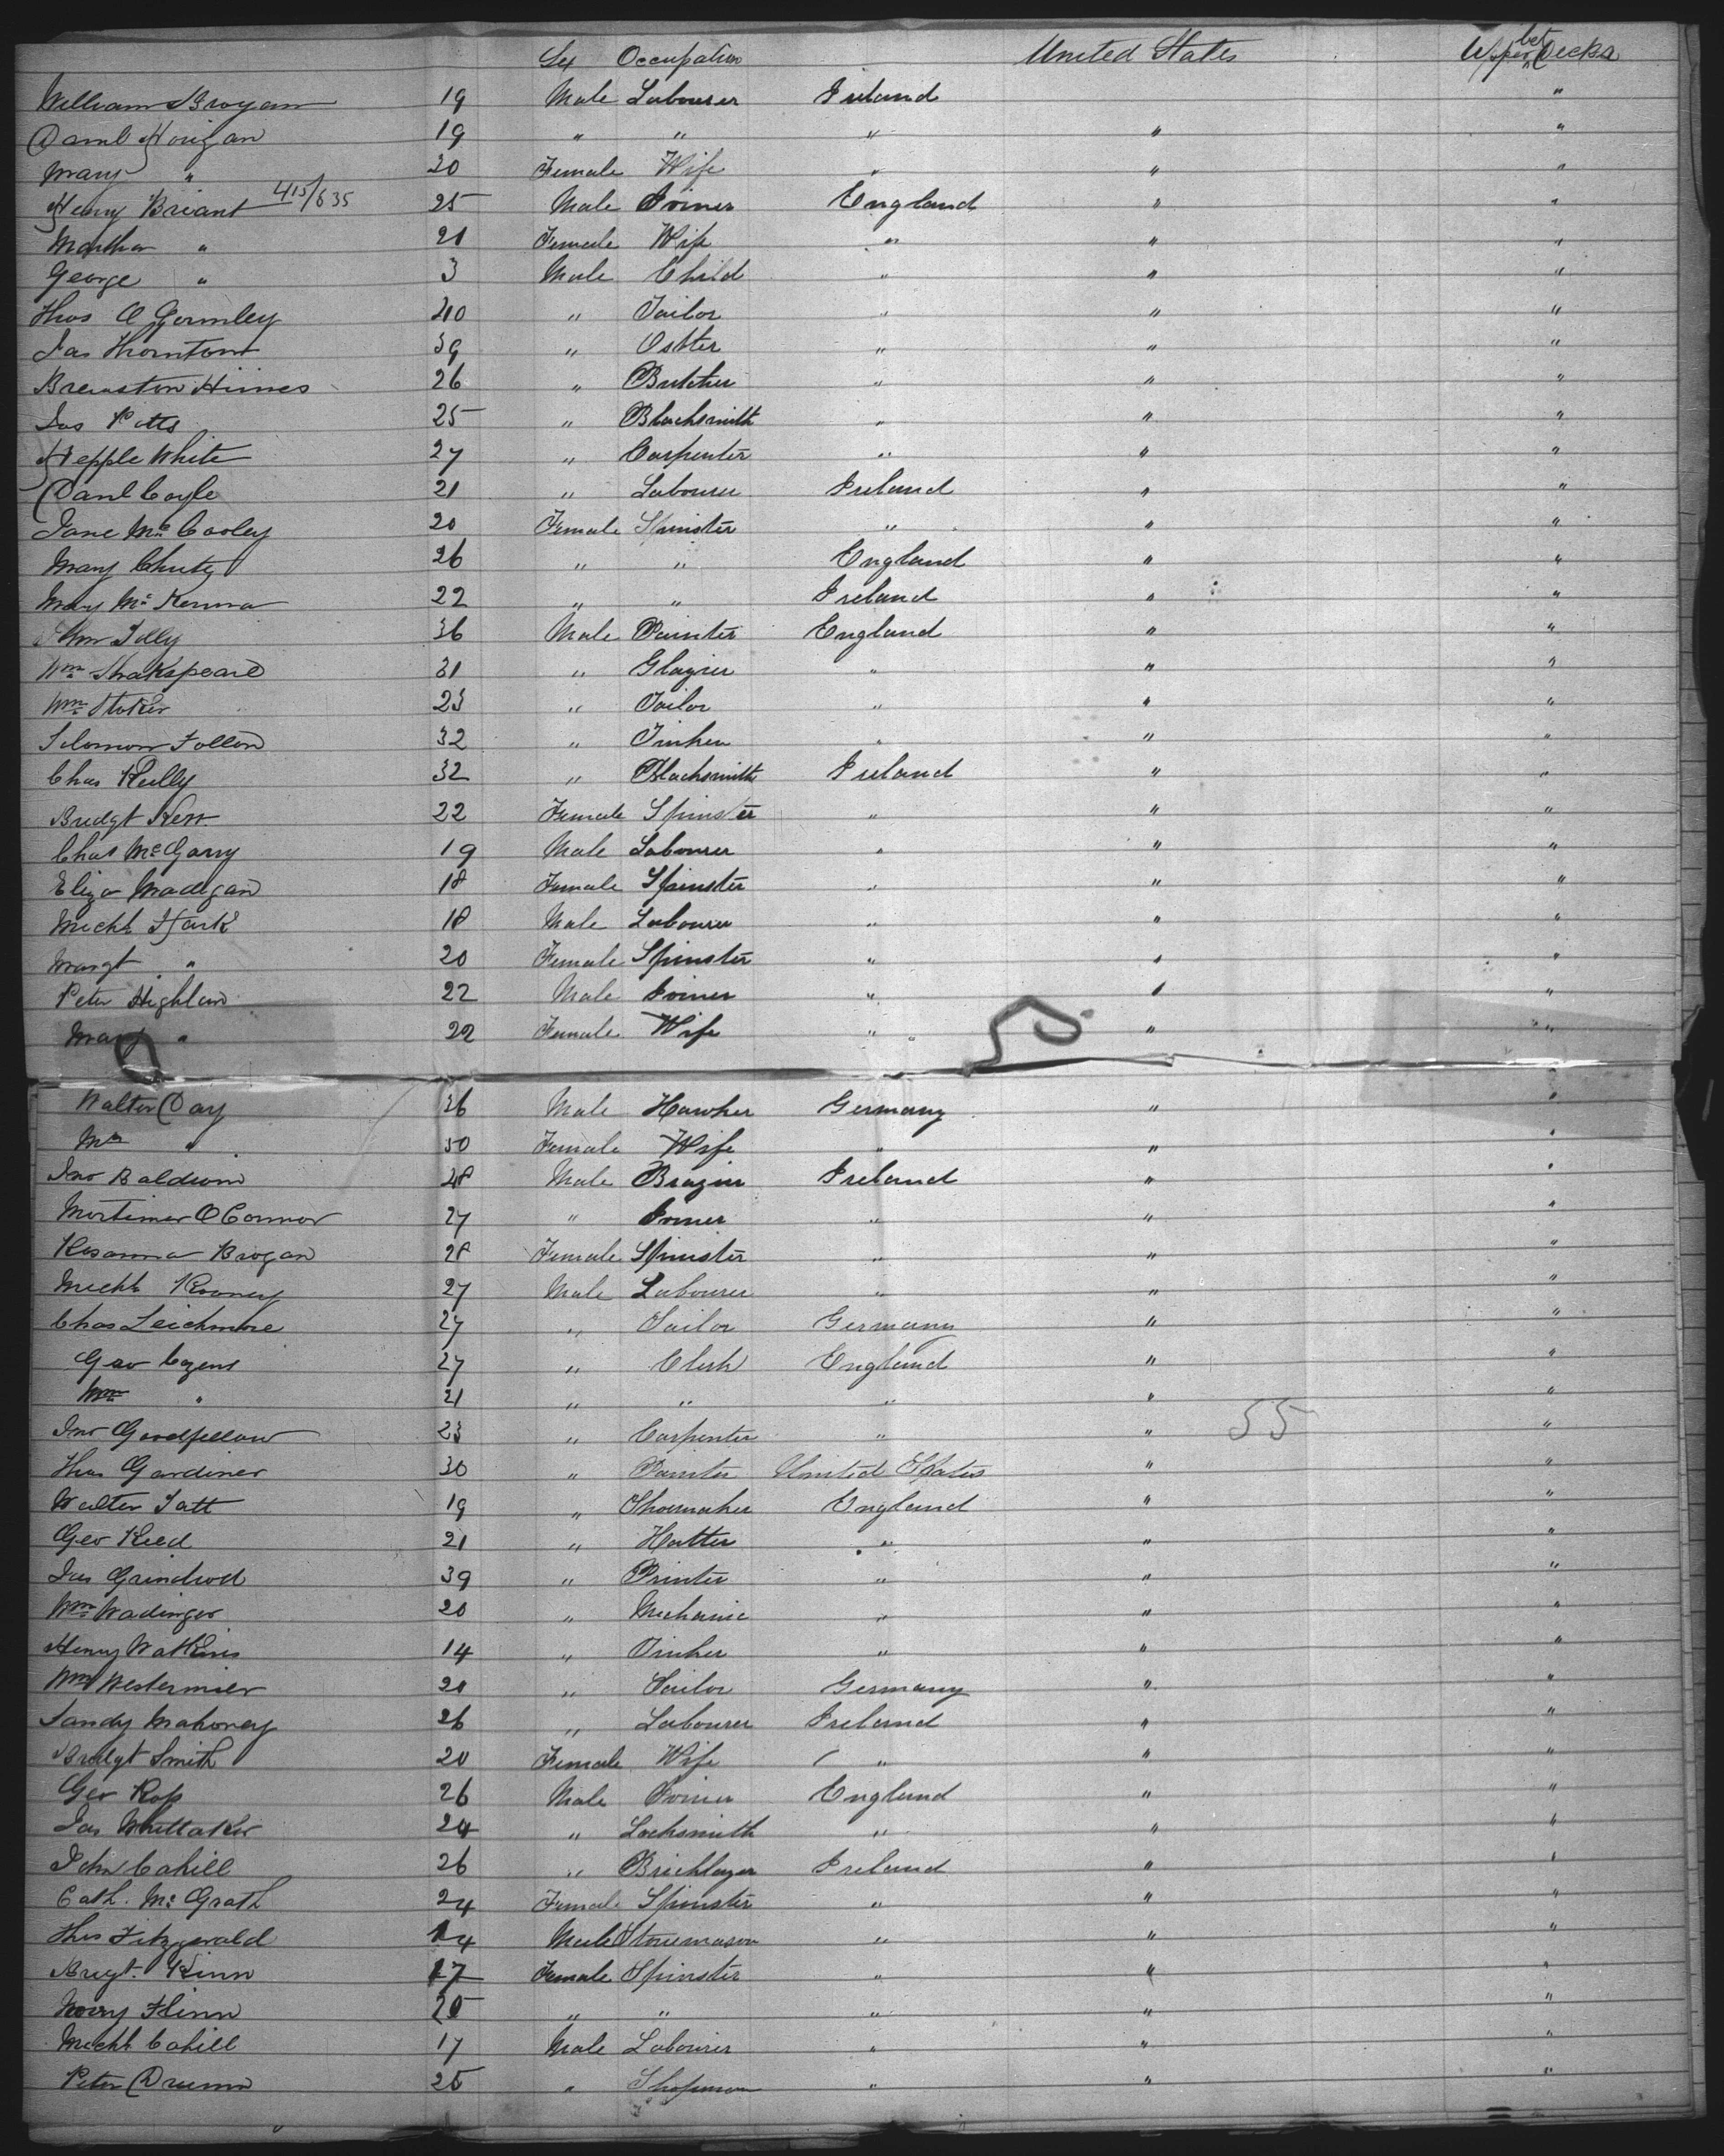 Sex Occupation United States Upper bet Decks
William Brogan 19 Male Labourer Ireland "
Danl Horigan 19 " " " " "
Mary " 20 Female Wife " " "
Henry Briant 415/635 25 Male Joiner England " "
Martha " 21 Female Wife " " "
George " 3 Male Child " " "
Thos O Gormley 20 " Tailor " " "
Jas Thornton 39 " Ostler " " "
Brewston Himes 26 " Butcher " " "
Jas Potts 25 " Blacksmith " " "
Hepple White 27 " Carpenter " " "
Danl Coyle 21 " Labourer Ireland " "
Jane Mc Cooley 20 Female Spinster " " "
Mary Chuty 26 " " England " "
Mary Mc Kenna 22 " " Ireland " "
Wm Tilly 36 Male Painter England " "
Wm Shakspeare 31 " Glazier " " "
Wm Stoker 23 " Tailor " " "
Solomon Follon 32 " Tinker " " "
Chas Kelly 32 " Blacksmith Ireland " "
Bridgt Kerr 22 Female Spinster " " "
Chas McGarry 19 Male Labourer " " "
Eliza Madigan 18 Female Spinster " " "
Michl Hark 18 Male Labourer " " "
Margt " 20 Female Spinster " " "
Peter Highlan 22 Male Joiner " " "
Mary " 22 Female Wife " " "
Walter Day 36 Male Hawker Germany " "
Mrs " 30 Female Wife " " "
Jno Baldwin 28 Male Brazier Ireland " "
Mortimer O Connor 27 " Joiner " " "
Rosanna Brogan 28 Female Spinster " " "
Michl Rooney 27 Male Labourer " " "
Chas Leichmore 27 " Tailor Germany " "
Geo Cozens 27 " Clerk England " "
Wm " 21 " " " " "
Jno Goodfellow 23 " Carpenter " " 55 "
Thos Gardiner 30 " Painter United States " "
Walter Tatt 19 " Shoemaker England " "
Geo Reed 21 " Hatter " " "
Jas Grindrod 39 " Printer " " "
Wm Wadinger 20 " Mechanic " " "
Henry Watkins 14 " Tinker " " "
Wm Westermier 20 " Tailor Germany " "
Sandy Mahoney 26 " Labourer Ireland " "
Bridgt Smith 20 Female Wife " " "
Geo Ross 26 Male Joiner England " "
Jas Whittaker 24 " Locksmith " " "
John Cahill 26 " Bricklayer Ireland " "
Cath. Mc Grath 24 Female Spinster " " "
Thos Fitzgerald 14 Male Stonemason " " "
Brigt. Kinn 17 Female Spinster " " "
Norry Flinn 20 " " " " "
Michl Cahill 17 Male Labourer " " "
Peter Drumm 25 " Shopman " " "